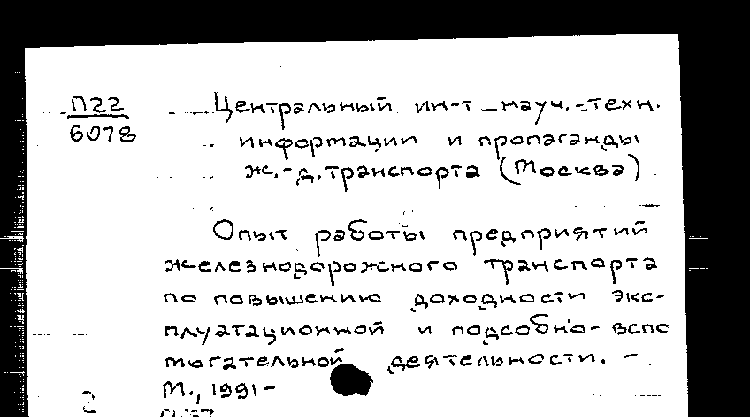 П22
6078
Центральный ин-т науч.-техн.
информации и пропаганды
ж.-д. транспорта (Москва)
Опыт работы предприятий
железнодорожного транспорта
по повышению доходности экс-
плуатационной и подсобно-вспо
могательной деятельности. -
М., 1991-
2